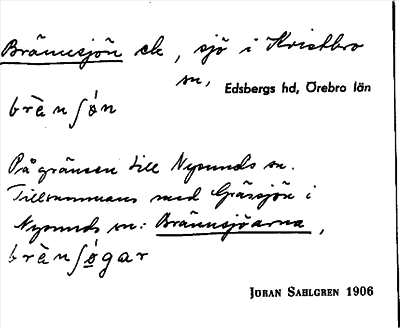 Brännsjön ek, sjö i Kvistbro
sn, Edsbergs hd, Örebro län
brä̀nʃø̀n
På gränsen till Nysunds sn.
Tillsammans med Gråssjön i
Nysunds sn: Brännsjöarna,
brä̀nʃø̀gar
JÖRAN SAHLGREN 1906